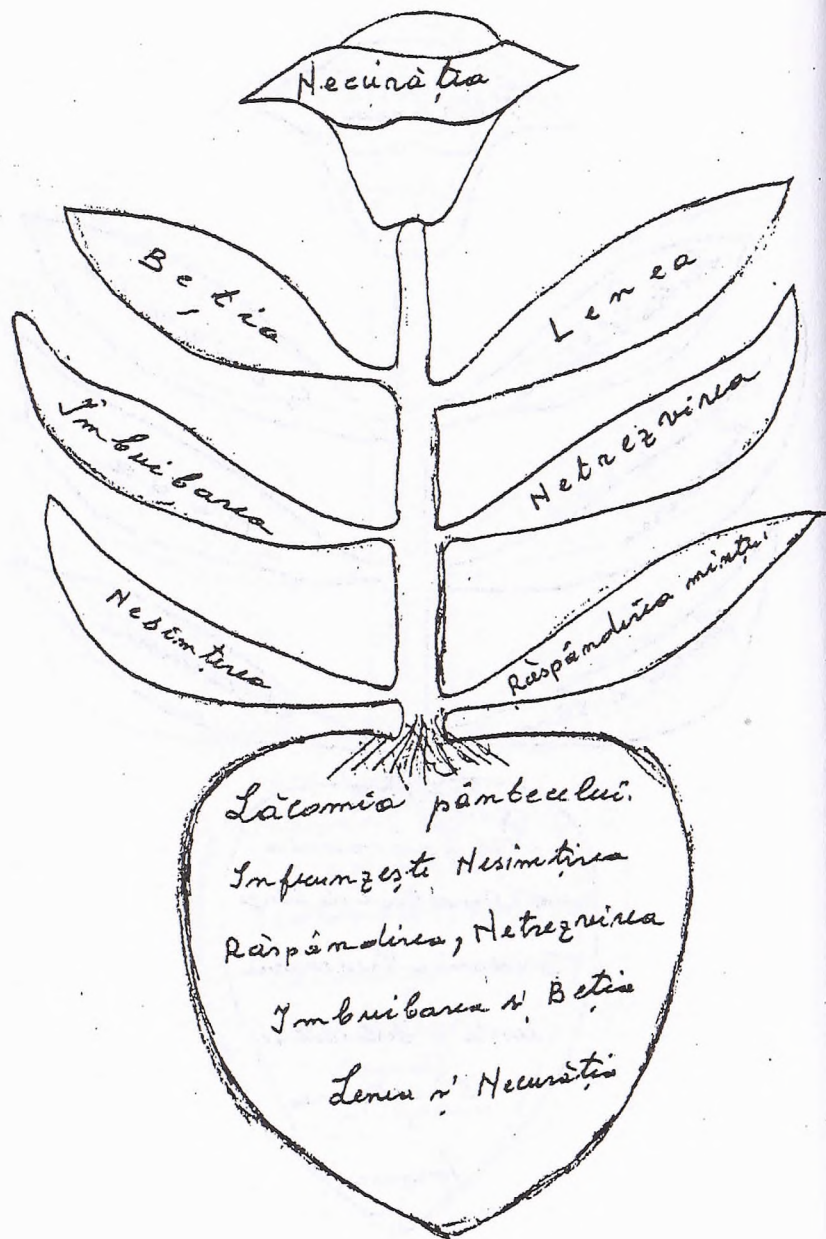 Necurăția
Beția
Lenea
Îmbuibarea
Netrezvirea
Nesimțirea
Răspândirea minții
Lăcomia pântecelui.
Infrunzește Nesimțirea
Răspândirea, Netrezvirea
Imbuibarea și Beția
Lenea și Necurăția